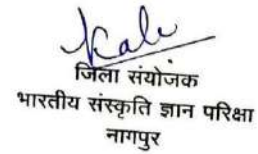 जिला संयोजक
भारतीय संस्कृति ज्ञान परिक्षा
नागपुर